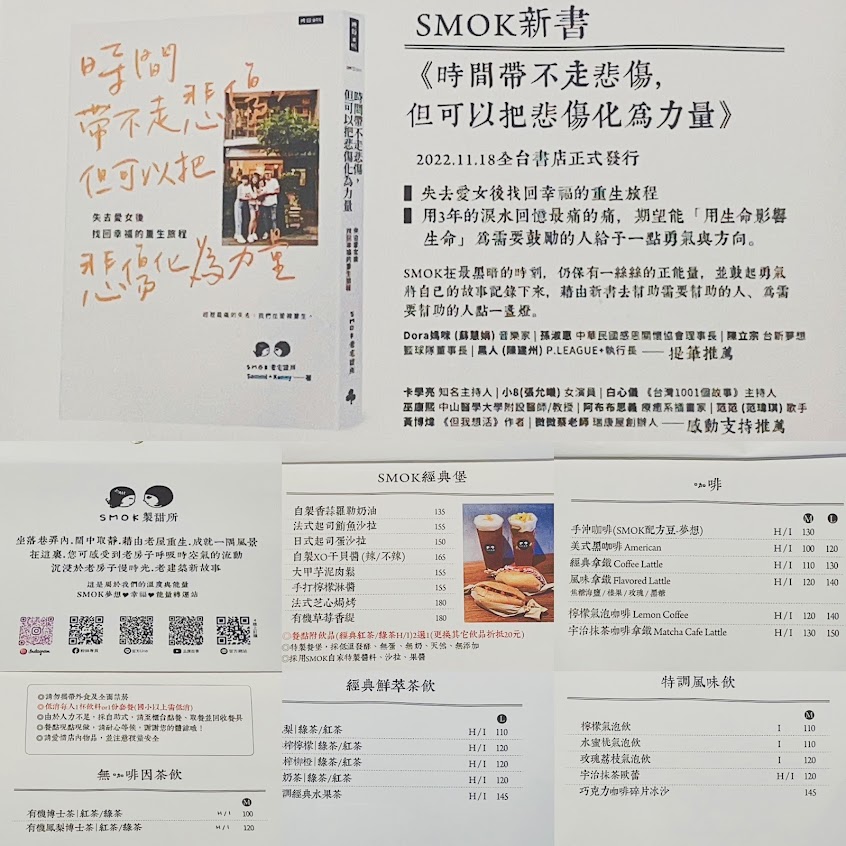 時報出版
時間
帶不走悲傷,
但可以把
失去愛女後
找回幸福的重生旅程
悲傷化為力量
經歷最痛的失去,我們在愛裡重生。
SMOK老宅甜所
Sammi + Kenny──著
時間帶不走悲傷,
但可以把悲傷化為力量
失去愛女後
找回幸福的重生旅程
SMOK老宅甜所
SMOK新書
《時間帶不走悲傷,
但可以把悲傷化為力量》
2022.11.18全台書店正式發行
▌失去愛女後找回幸福的重生旅程
▌用3年的淚水回憶最痛的痛,期望能「用生命影響
生命」為需要鼓勵的人給予一點勇氣與方向。
SMOK在最黑暗的時刻,仍保有一絲絲的正能量,並鼓起勇氣
將自己的故事記錄下來,藉由新書去幫助需要幫助的人、為需
要幫助的人點一盞燈。
Dora媽咪 (蘇慧娟) 音樂家 | 孫淑惠 中華民國感恩關懷協會理事長 | 陳立宗 台新夢想
籃球隊董事長 | 黑人 (陳建州) P.LEAGUE+執行長 ── 提筆推薦
卡學亮 知名主持人 | 小8(張允曦) 女演員 | 白心儀 《台灣1001個故事》主持人
巫康熙 中山醫學大學附設醫師/教授 | 阿布布思義 療癒系插畫家 | 范范 (范瑋琪) 歌手
黃博煒 《但我想活》作者 | 微微蔡老師 瑞康屋創辦人 ── 感動支持推薦
SMOK製甜所
坐落巷弄內,鬧中取靜,藉由老屋重生,成就一隅風景
在這裏,您可感受到老房子呼吸時空氣的流動
沉浸於老房子慢時光,老建築新故事
這是屬於我們的溫度與能量
SMOK夢想♥幸福♥能量轉運站
Instagram
粉絲專頁
官方Line
品牌故事
官方網站
◎請勿攜帶外食及全面禁菸
◎低消每人1杯飲料or1份套餐(國小以上需低消)
◎由於人力不足,採自助式,請至櫃台點餐、取餐並回收餐具
◎餐點現點現做,請耐心等候,謝謝您的體諒哦!
◎請愛惜店內物品,並注意視量安全
無咖啡因茶飲
M
有機博士茶 | 紅茶/綠茶 H/I 100
有機鳳梨博士茶 | 紅茶/綠茶 H/I 120
SMOK經典堡
自製香蒜羅勒奶油 135
法式起司鮪魚沙拉 155
日式起司蛋沙拉 150
自製XO干貝醬 (辣/不辣) 165
大甲芋泥肉鬆 155
手打檸檬淋醬 155
法式芝心焗烤 180
有機草莓香緹 180
◎餐點附飲品(經典紅茶/綠茶H/I)2選1(更換其它飲品折抵20元)
◎特製餐堡,採低溫發酵、無蛋、無奶、天然、無添加
◎採用SMOK自家特製醬料、沙拉、果醬
經典鮮萃茶飲
L
梨 | 綠茶/紅茶 H/I 110
榨檸檬 | 綠茶/紅茶 H/I 120
榨柳橙 | 綠茶/紅茶 H/I 120
奶茶 | 綠茶/紅茶 H/I 120
調經典水果茶 H/I 145
咖啡
M L
手沖咖啡(SMOK配方豆-夢想) H/I 130
美式黑咖啡 American H/I 100 120
經典拿鐵 Coffee Latte H/I 110 130
風味拿鐵 Flavored Latte H/I 120 140
焦糖海鹽 / 榛果 / 玫瑰 / 黑糖
檸檬氣泡咖啡 Lemon Coffee H/I 120 140
宇治抹茶咖啡拿鐵 Matcha Cafe Latte H/I 130 150
特調風味飲
M
檸檬氣泡飲 I 110
水蜜桃氣泡飲 I 110
玫瑰荔枝氣泡飲 I 120
宇治抹茶歐蕾 H/I 120
巧克力咖啡碎片冰沙 145